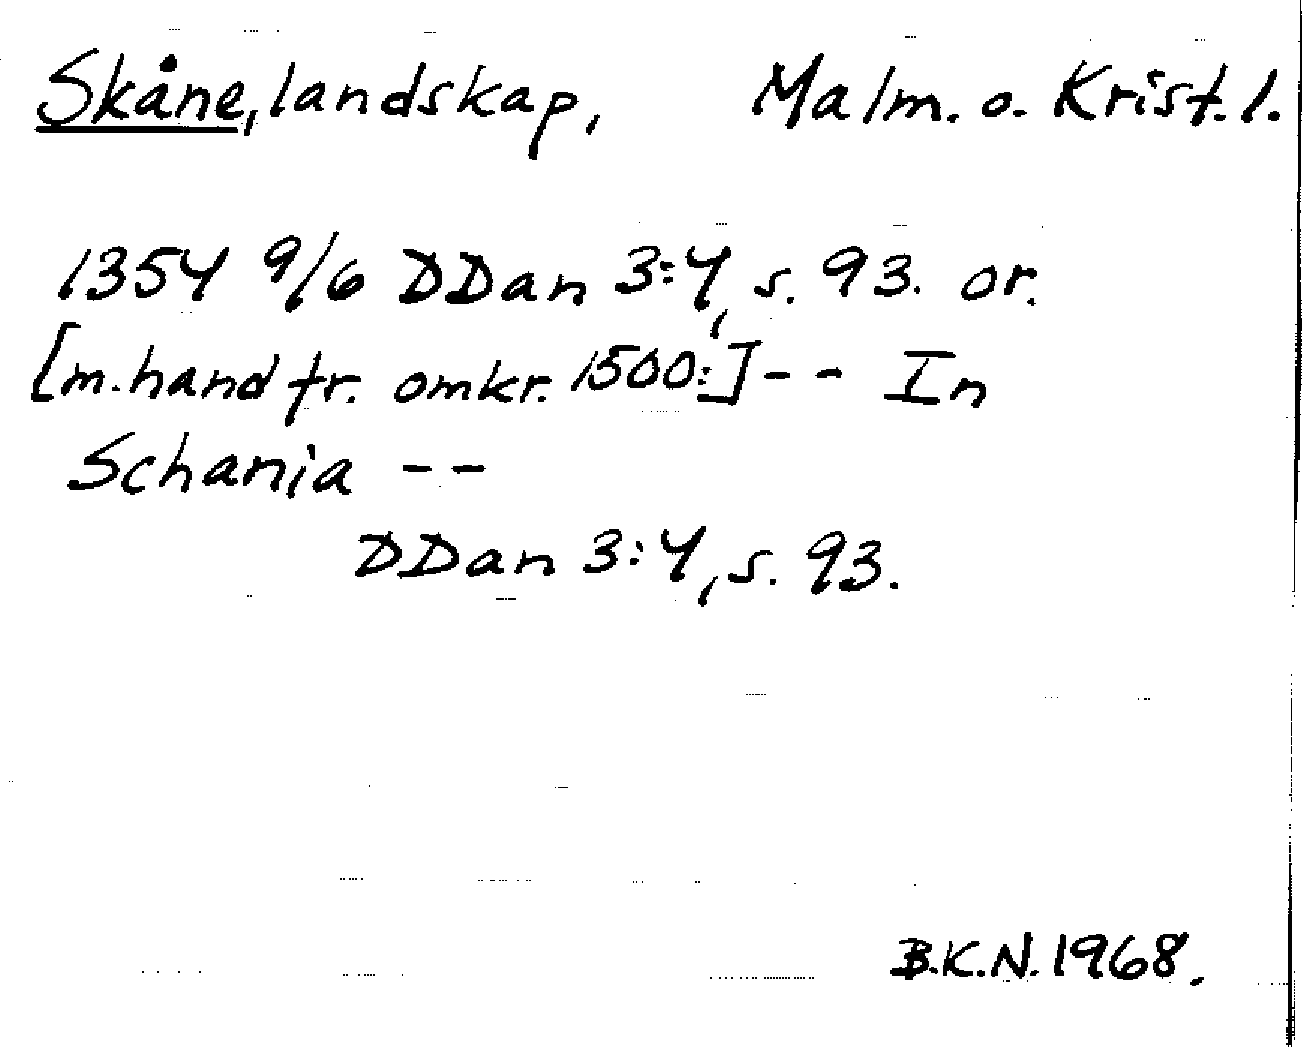 Skåne, landskap, Malm. o. Krist. l.
1354 9/6 DDan 3:4, s. 93. or.
[m. hand fr. omkr. 1500:] - - In
Schania - -
DDan 3:4, s. 93.
B.K.N. 1968.